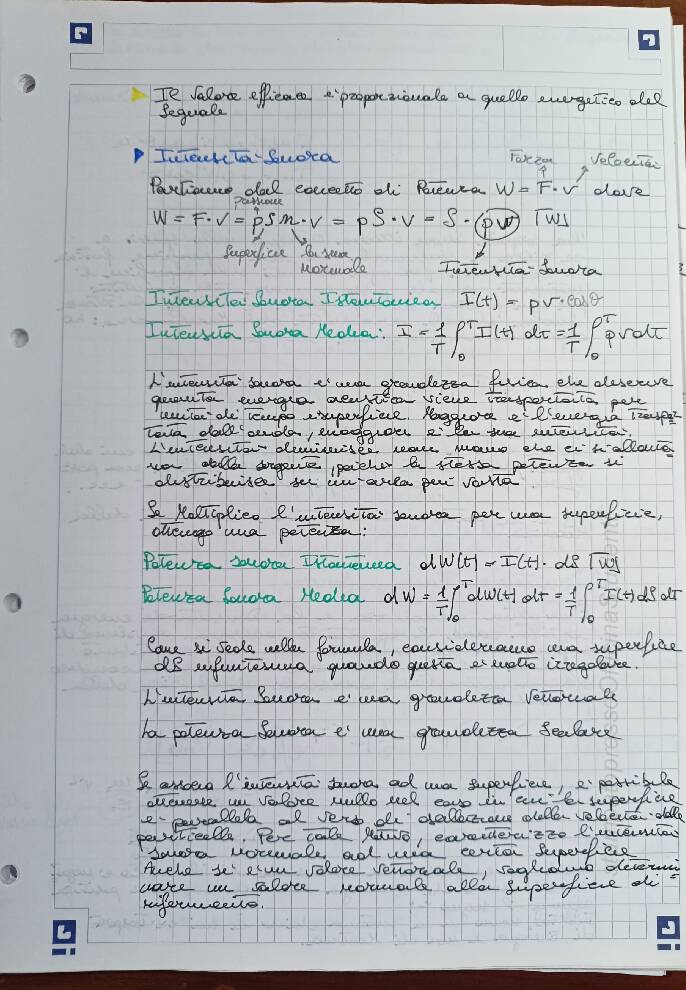 Il valore efficace e' proporzionale a quello energetico del
segnale
Intensità Sonora
Forza Velocità
Partiamo dal concetto di Potenza W = F · v dove
pressione
W = F · v = p S n · v = p S · v = S · (p v) [W]
Superficie la sua
normale Intensità Sonora
Intensità Sonora Istantanea I(t) = p v · cosθ
Intensità Sonora Media: I = 1/T ∫₀ᵀ I(t) dt = 1/T ∫₀ᵀ p v dt
L'intensità sonora e' una grandezza fisica che descrive
quanta energia acustica viene trasportata per
unità di tempo e superficie. Maggiore e' l'energia traspor
tata dall'onda, maggiore e' la sua intensità.
L'intensità diminuisce man mano che ci si allonta
na dalla sorgente, poiché la stessa potenza si
distribuisce su un'area più vasta.
Se Moltiplico l'intensità sonora per una superficie,
ottengo una potenza:
Potenza sonora Istantanea dW(t) = I(t) · dS [W]
Potenza Sonora Media dW = 1/T ∫₀ᵀ dW(t) dt = 1/T ∫₀ᵀ I(t) dS dt
Come si vede nella formula, consideriamo una superficie
dS infinitesima quando questa e' molto irregolare.
L'intensità Sonora e' una grandezza Vettoriale
La potenza Sonora e' una grandezza Scalare
Se associo l'intensità sonora ad una superficie, e' possibile
ottenere un valore nullo nel caso in cui la superficie
e' parallela al verso di oscillazione della velocità delle
particelle. Per tale Motivo, caratterizzo l'intensità
sonora normale ad una certa superficie.
Anche se e' un valore vettoriale, vogliamo determi-
nare un valore normale alla superficie di
riferimento.